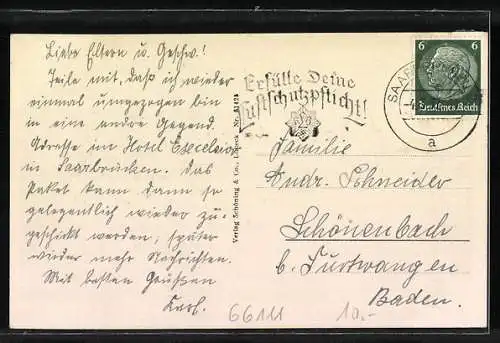 Liebe Eltern u. Geschw.!
Teile mit, daß ich wieder
einmal umgezogen bin
in eine andre Gegend.
Adresse im Hotel Excelsior
in Saarbrücken. Das
Paket kann dann so
gelegentlich wieder zu-
geschickt werden, später
wieder mehr Nachrichten.
Mit besten Grüßen
Karl.
Verlag Schöning & Co., Lübeck
Erfülle Deine
Luftschutzpflicht!
SAARBRÜCKEN
a
6 6
Deutsches Reich
Familie
Andr. Schneider
Schönenbach
b. Furtwangen
Baden.
66111
10.-